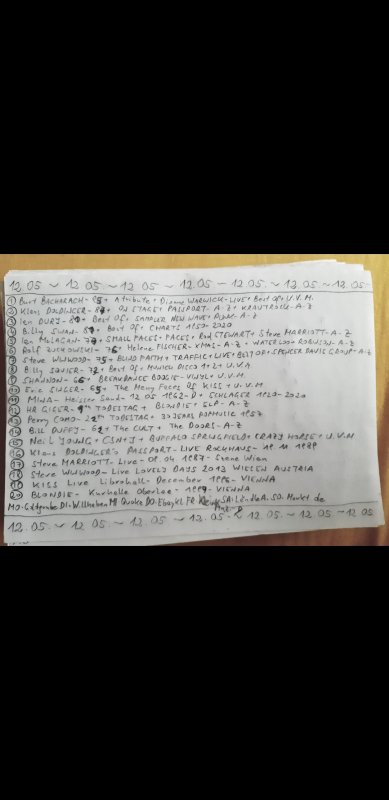 12.05 ~ 12.05 ~ 12.05 ~ 12.05 ~ 12.05. ~ 12.05 ~ 12.05
① Burt BACHARACH - 95 + A tribute + Dionne WARWICK - LIVE + Best Of + U.V.M.
② Klaus DOLDINGER - 87 + ON STAGE + PASSPORT - A-Z + KRAUTROCK - A-Z
③ Ian DURY - 81 + Best Of + SAMPLER NEW WAVE + PUNK - A-Z
④ Billy SWAN - 81 + Best Of + CHARTS 1950-2020
⑤ Ian McLAGAN - 78 + SMALL FACES + FACES + Rod STEWART + Steve MARRIOTT - A-Z
⑥ Rolf ZUCKOWSKI - 76 + Helene FISCHER - XMAS - A-Z + WATERLOO ROBINSON - A-Z
⑦ Steve WINWOOD - 75 + BLIND FAITH + TRAFFIC + LIVE + BEST OF + SPENCER DAVIS GROUP - A-Z
⑧ Billy SQUIER - 73 + Best Of + Munich Disco 1+2 + U.V.M
⑨ SHANNON - 65 + BREAKDANCE BOOGIE - VINYL + U.V.M.
⑩ Eric SINGER - 65 + The Many Faces Of KISS + U.V.M
⑪ MINA - Heisser Sand - 12 05 1962 - D + SCHLAGER 1920-2020
⑫ HR GIGER - 9th TODESTAG + BLONDIE + ELP - A-Z
⑬ Perry COMO - 22th TODESTAG + JAHRE POPMUSIC 1957
⑭ Bill DUFFY - 62 + The CULT + The DOORS - A-Z
⑮ Neil YOUNG + CSN + Y + BUFFALO SPRINGFIELD + CRAZY HORSE + U.V.M
⑯ Klaus DOLDINGER's PASSPORT - LIVE ROCKHAUS - 19.11.1989
⑰ Steve MARRIOTT - Live - 08.04.1987 - Szene Wien
⑱ Steve WINWOOD - Live LOVELY DAYS 2013 WIESEN AUSTRIA
⑲ KISS Live Librohall - December 1996 - VIENNA
⑳ BLONDIE - Kurhalle Oberlaa - 1999 - VIENNA
MO. DI. Willhaben MI Quoka DO. Ebay FR SA. SO. Markt.de
12.05. ~ 12.05. ~ 12.05 ~ 12.05. ~ 12.05. ~ 12.05 ~ 12.05